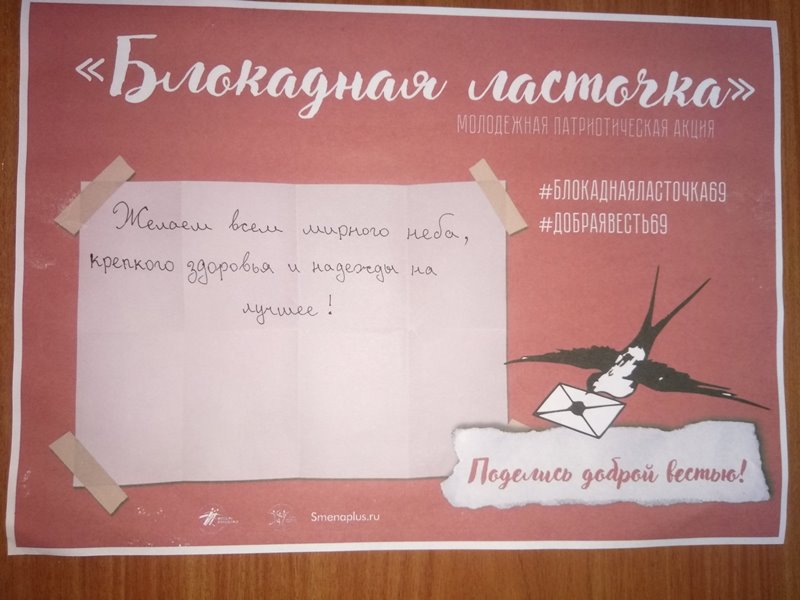 «Блокадная ласточка»
МОЛОДЕЖНАЯ ПАТРИОТИЧЕСКАЯ АКЦИЯ
#БЛОКАДНАЯЛАСТОЧКА69
#ДОБРАЯВЕСТЬ69
Желаем всем мирного неба,
крепкого здоровья и надежды на
лучшее!
Поделись доброй вестью!
Smenaplus.ru